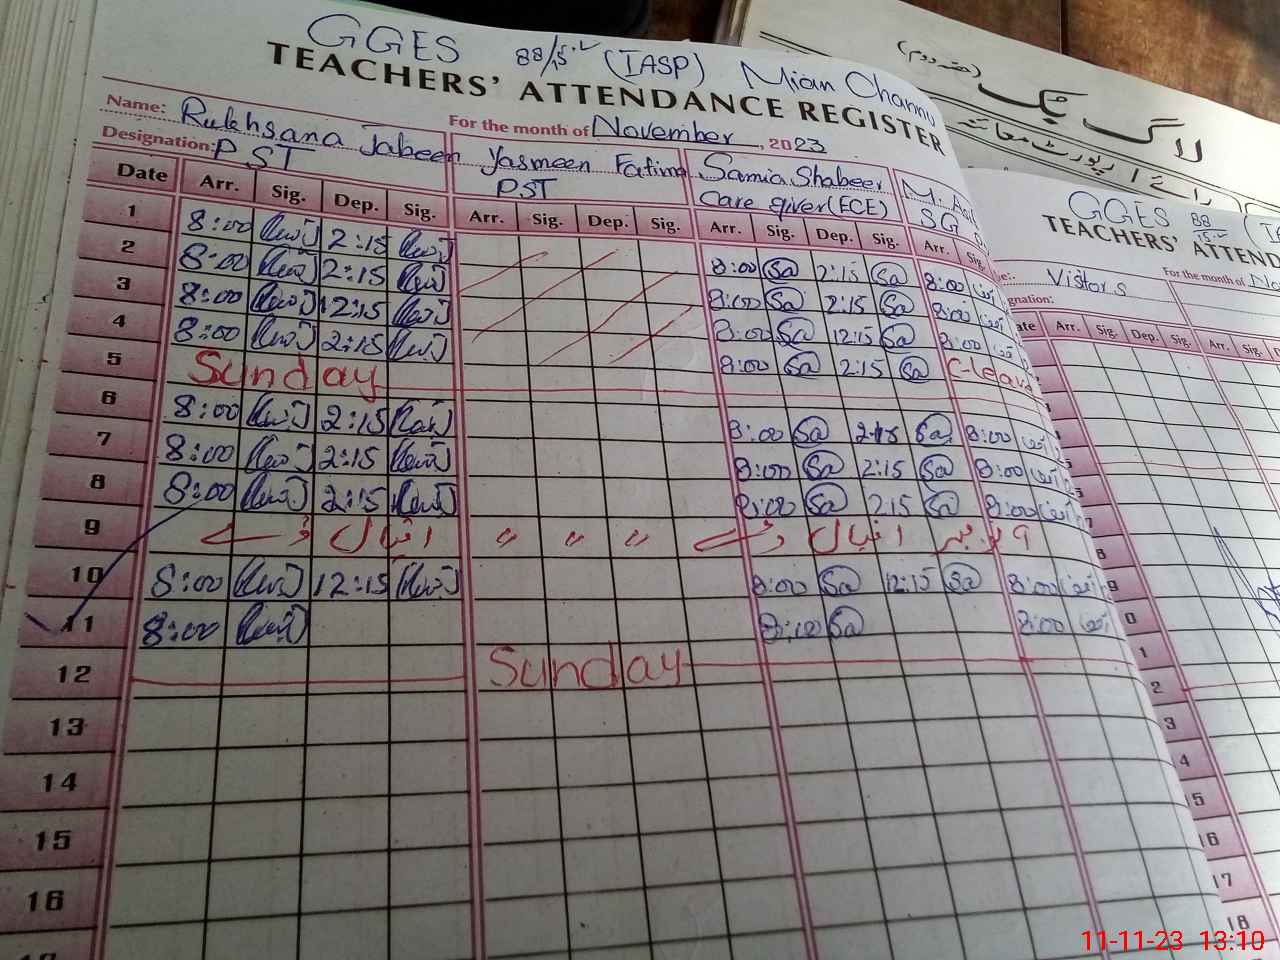 GGES 88/15.L (IASP) Mian Channu
TEACHERS' ATTENDANCE REGISTER
Name: Rukhsana Jabeen For the month of November, 2023
Designation: PST Yasmeen Fatima Samia Shabeer M.
PST Care giver (ECE) SG
Date Arr. Sig. Dep. Sig. Arr. Sig. Dep. Sig. Arr. Sig. Dep. Sig. Arr. Sig.
1 8:00 2:15 8:00 Sa 2:15 Sa 8:00
2 8:00 2:15 8:00 Sa 2:15 Sa 8:00
3 8:00 12:15 8:00 Sa 12:15 Sa 8:00
4 8:00 2:15 8:00 Sa 2:15 Sa C-leave
5 Sunday
6 8:00 2:15 8:00 Sa 2:15 Sa 8:00
7 8:00 2:15 8:00 Sa 2:15 Sa 8:00
8 8:00 2:15 8:00 Sa 2:15 Sa 8:00
9 اقبال ڈے " " " 9 نومبر اقبال ڈے
10 8:00 12:15 8:00 Sa 12:15 Sa 8:00
11 8:00 8:00 Sa 8:00
12 Sunday
13
14
15
16
لاگ بک (حصہ دوم)
GGES 88/15.L
TEACHERS' ATTEND
Visitors For the month of No
Arr. Sig. Dep. Sig. Arr. Sig.
8
9
0
1
2
3
4
15
16
17
18
11-11-23 13:10